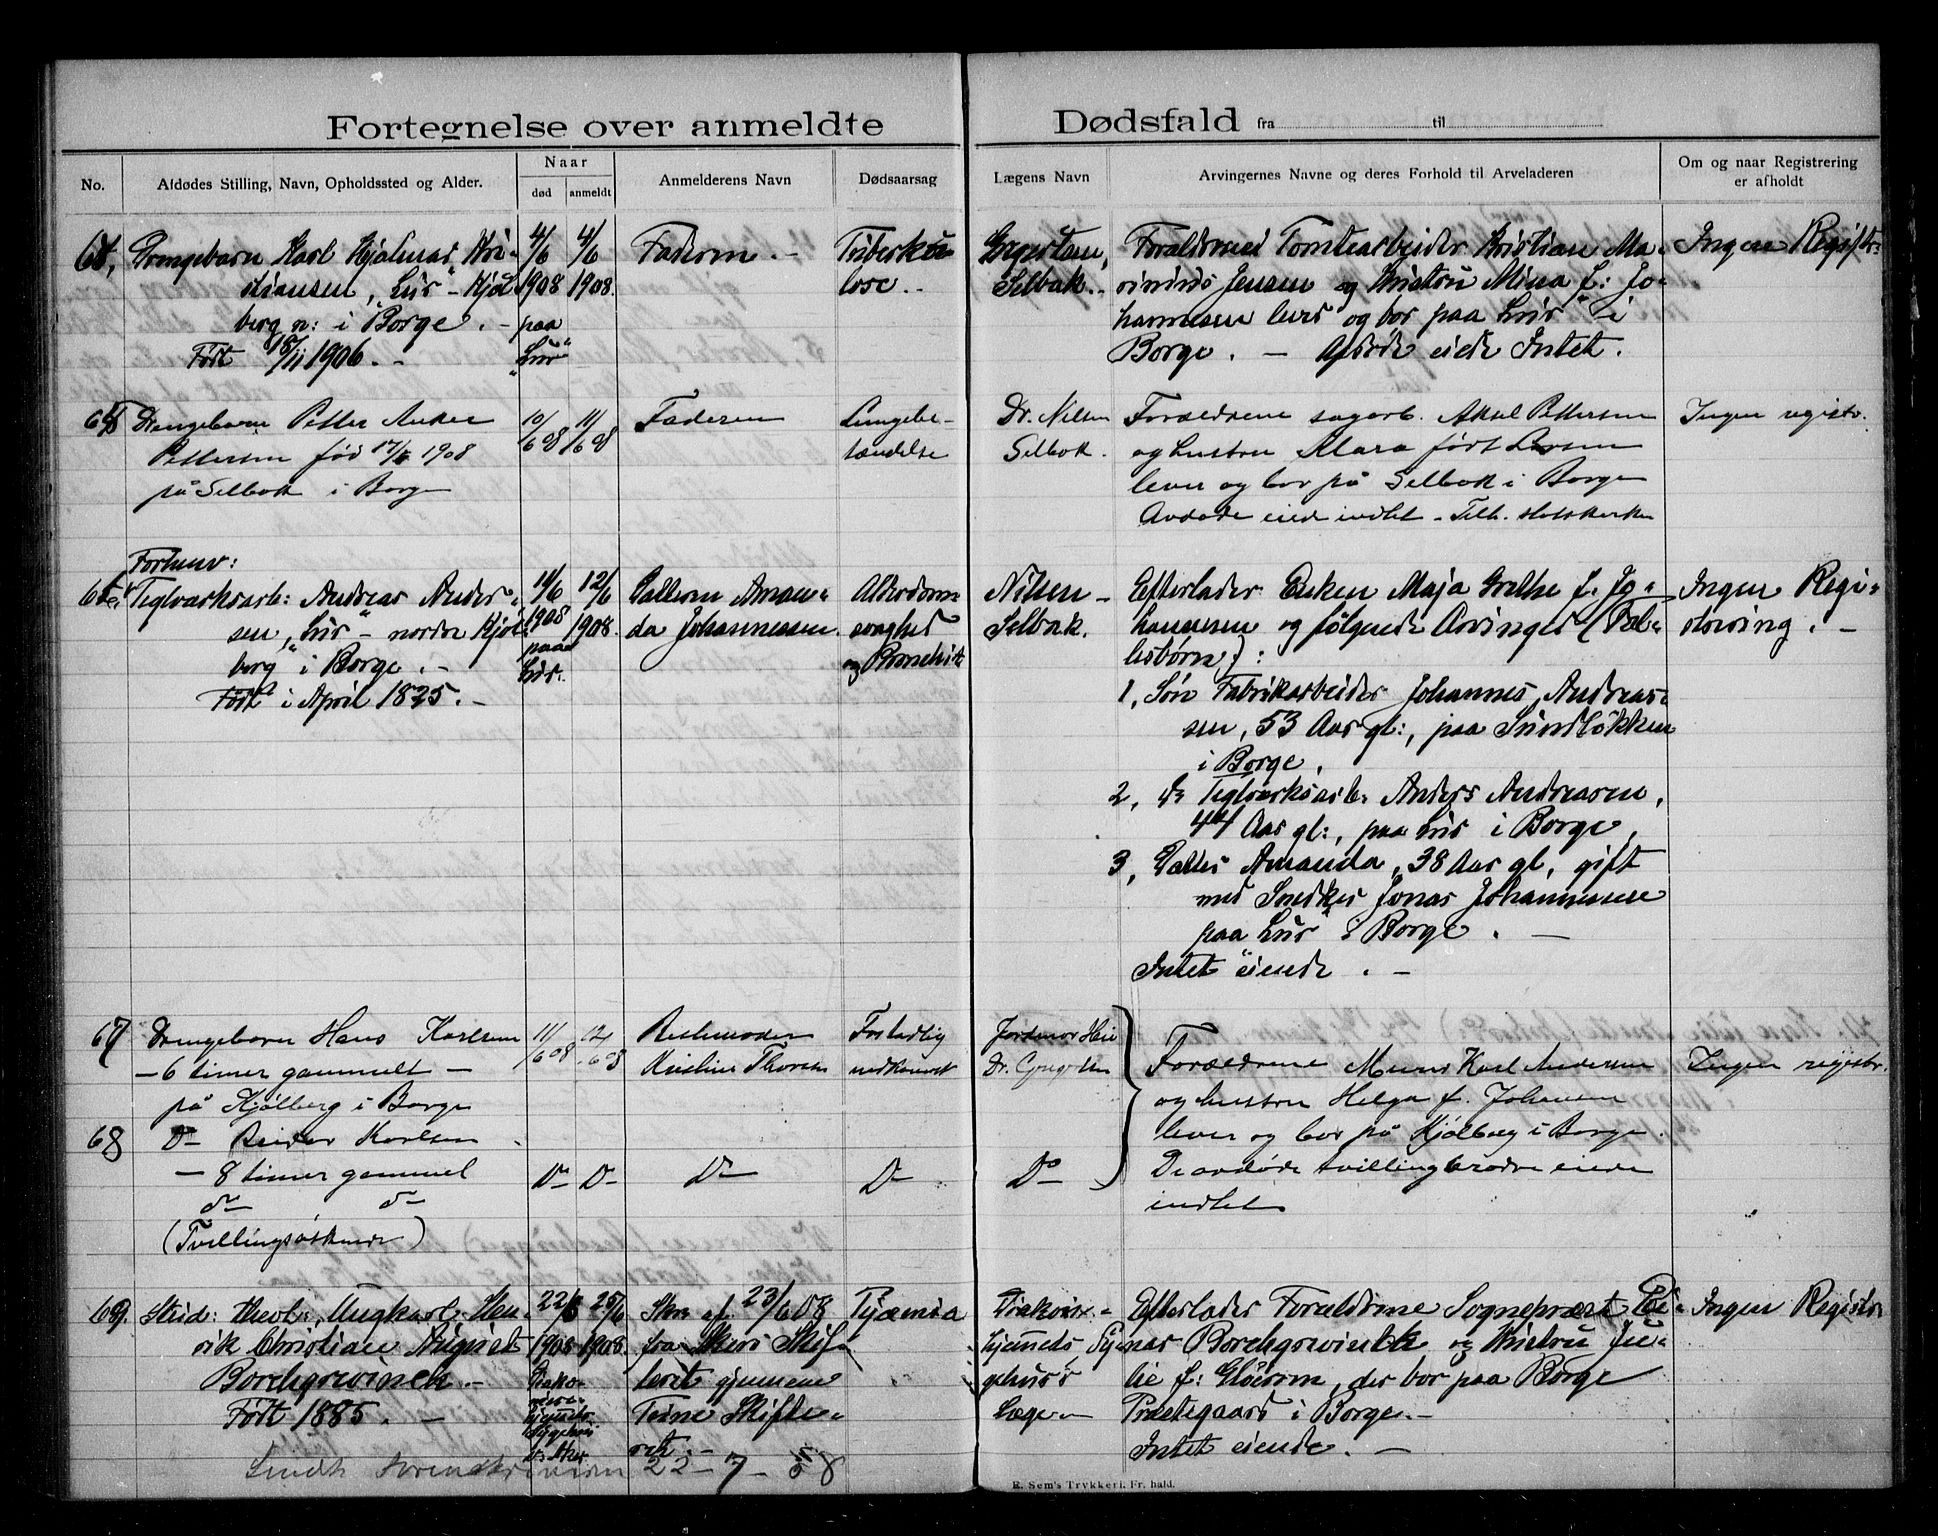 Fortegnelse over anmeldte Dødsfald fra til
No.
Afdødes Stilling, Navn, Opholdssted og Alder.
Naar
død
anmeldt
Anmelderens Navn
Dødsaarsag
Lægens Navn
Arvingernes Navne og deres Forhold til Arveladeren
Om og naar Registrering
er afholdt
Drengebarn Karl Hjalmar Kri-
stiansen, "Lur" - Kjøl-
berg n: i Borge. -
Født 18/11 1906. -
4/6
1908
paa
"Lur"
4/6
1908.
Faderen. -
Tuberku-
lose. -
Gregersen,
Selbak. -
Forældrene Tomtearbeider Kristian Ma-
rinius Jensen og Hustru Mina f: Jo-
hannesen lever og bor paa "Lur" i
Borge. - Afdøde eiede Intet.
Ingen Registr.
Drengebarn Petter Anker
Pettersen fød 1908
på Selbak i Borge
10/6 08
11/6 08
Faderen
Lungebe-
tændelse
Dr. Nilsen
Selbak.
Forældrene sagarb. Aksel Pettersen
og hustru Klara født Larsen
lever og bor på Selbak i Borge
Avdøde eied indtet - Tilh.
Ingen registr.
Forhenv:
Teglværksarb: Andreas Ander-
sen, "Lur" - nordre Kjøl-
berg i Borge. -
Født i April 1825. -
1908
paa
Lur.
12/6
1908.
Datteren Aman-
da Johannessen.
Alderdoms
svaghed
og Bronchit
Nilsen -
Selbak.
Efterlader Enken Maja Grethe f. Jo-
hannesen og følgende Arvinger (Fæl-
lesbørn):
1, Søn Fabrikarbeider Johannes Andreas-
sen, 53 Aar gl:, paa Sundløkken
i Borge,
2, do Teglværksarb: Anders Andreasen,
44 Aar gl:, paa Lur i Borge,
3, Datter Amanda, 38 Aar gl, gift
med Snedker Jonas Johannessen
paa "Lur" i Borge. -
Intet eiende. -
Ingen Regi-
strering. -
67
Drengebarn Hans Karlsen
- 6 timer gammelt -
på Kjølberg i Borge
11/6 08
12/6 08
Bestemoder
Kristine Thoresen
For tidlig
nedkomst
Jordmor Hie
Dr. Gregersen
Forældrene Murer Karl Andersen
og hustru Helga f. Johansen
lever og bor på Kjølberg i Borge.
De avdøde tvillingbrødre eiede
indtet
Ingen registr.
68
Do Reidar Karlsen
- 8 timer gammel
do do
(Tvillingsøskende)
Do
Do
Do
Do
Do
69.
Stud: theol:, Ungkarl Hen-
rik Christian August
Borchgrevinck. -
Født 1885. -
22/6
1908
Diako-
nhjemmets
Sygehus
V. Aker
25/6
1908.
Skr. af 23/6 08
fra Akers Skif-
teret gjennem
Tune Skifte-
ret. -
Pyæmia
Diakon-
hjemmets Sy-
gehus's
Læge -
Efterlader Forældrene Sogneprest Ei-
nar Borchgrevinck og Hustru Ju-
lie f: Gløersen, der bor paa Borge
Præstegaard i Borge. -
Intet eiende. -
Ingen Registr
Sendt Sorenskriveren 22-7-08
E. Sem's Trykkeri, Fr. hald.